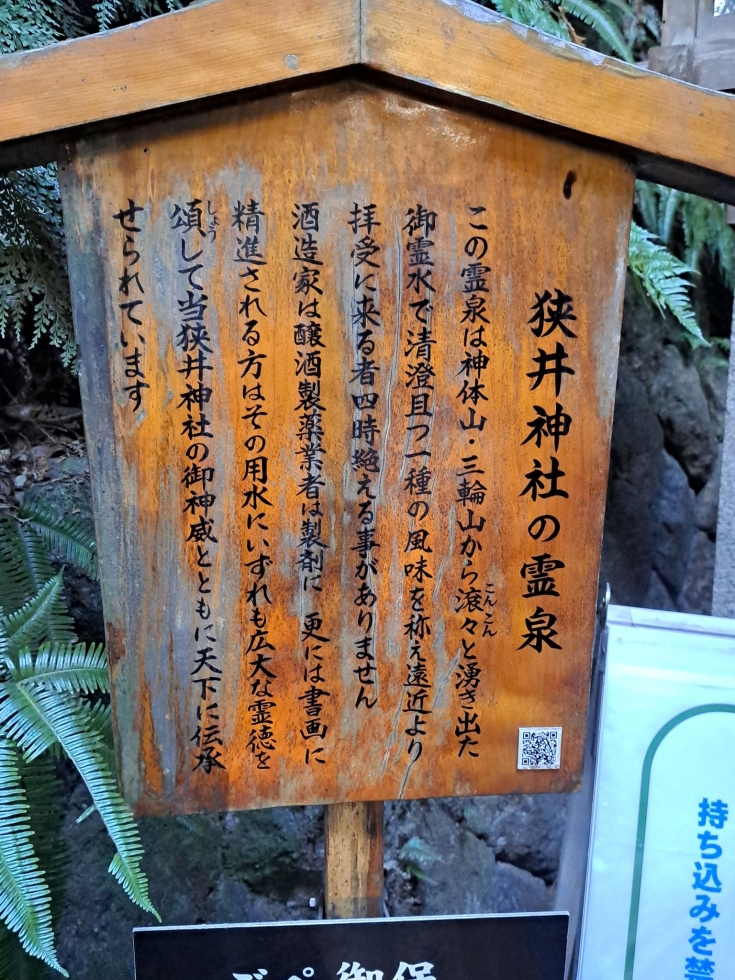 狭井神社の霊泉
この霊泉は神体山・三輪山から滾々と湧き出た
こんこん
御霊水で清澄且つ一種の風味を称え遠近より
拝受に来る者四時絶える事がありません
酒造家は醸酒製薬業者は製剤に 更には書画に
精進される方はその用水にいずれも広大な霊徳を
頌して当狭井神社の御神威とともに天下に伝承
しょう
せられています
持ち込みを禁